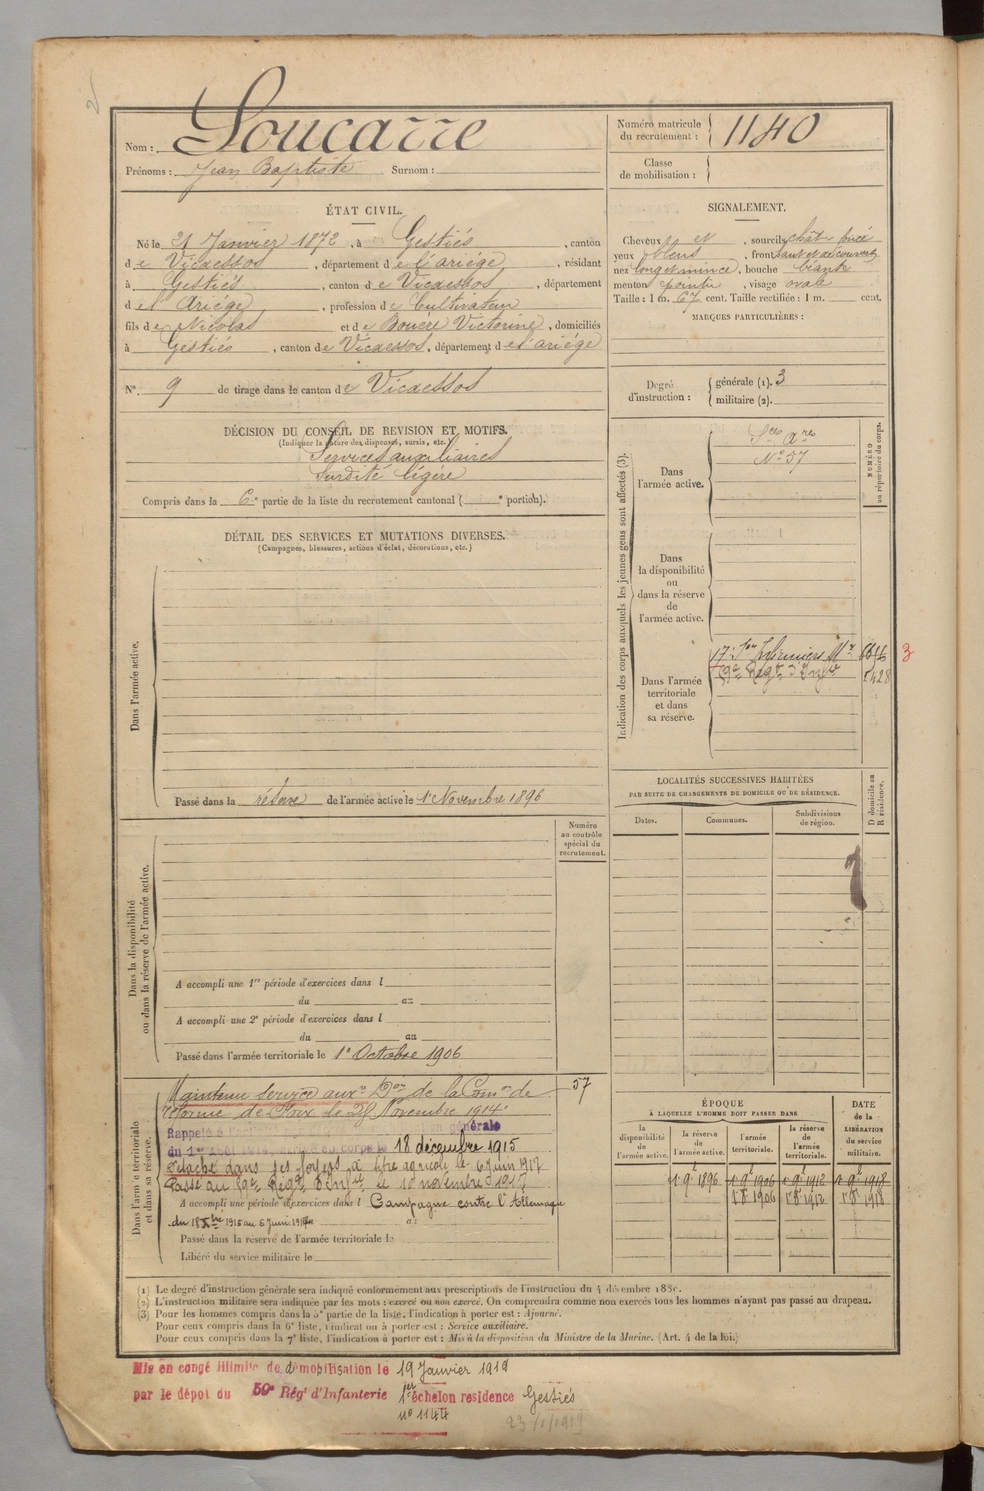 Nom : Loucarre
Prénoms : Jean Baptiste Surnom :
Numéro matricule du recrutement : 1140
Classe de mobilisation :
ÉTAT CIVIL.
Né le 21 Janvier 1872, à Gestiés, canton
de Vicdessos, département de l'ariége, résidant
à Gestiés, canton de Vicdessos, département
d el' Ariége, profession de Cultivateur
fils de Nicolas et de Boucre Victorine, domiciliés
à Gestiés, canton de Vicdessos, département de l'ariége
N° 9 de tirage dans le canton de Vicdessos
SIGNALEMENT.
Cheveux et, sourcils chât foncé
yeux bleus, front haut et découvert
nez long et mince, bouche béante
menton pointu, visage ovale
Taille : 1 m. 67 cent. Taille rectifiée : 1 m. cent.
MARQUES PARTICULIÈRES :
Degré d'instruction : générale (1). 3
militaire (2).
DÉCISION DU CONSEIL DE REVISION ET MOTIFS.
(Indiquer la nature des dispenses, sursis, etc.)
Services auxiliaires
Surdité légère
Compris dans la 6e partie de la liste du recrutement cantonal ( e portion).
DÉTAIL DES SERVICES ET MUTATIONS DIVERSES.
(Campagnes, blessures, actions d'éclat, décorations, etc.)
Dans l'armée active.
Passé dans la réserve de l'armée active le 1er Novembre 1896
Indication des corps auxquels les jeunes gens sont affectés (3).
NUMÉRO au répertoire du corps.
Dans l'armée active.
Sces Ares
N° 57
Dans la disponibilité ou dans la réserve de l'armée active.
Dans l'armée territoriale et dans sa réserve.
17e Son Infirmiers Mre
59e Régt d'Infie
3
LOCALITÉS SUCCESSIVES HABITÉES
PAR SUITE DE CHANGEMENTS DE DOMICILE OU DE RÉSIDENCE.
Dates. Communes. Subdivisions de région. D domicile ou R résidence.
Numéro au contrôle spécial du recrutement.
57
Dans la disponibilité ou dans la réserve de l'armée active.
A accompli une 1re période d'exercices dans l
du au
A accompli une 2e période d'exercices dans l
du au
Passé dans l'armée territoriale le 1er Octobre 1906
Dans l'armée territoriale et dans sa réserve.
Maintenu service auxre Don de la Comon de
réforme de Foix le 28 Novembre 1914
Rappelé à générale
du 1er Août 1914, arrivé au corps le 18 décembre 1915
Détaché dans ses foyers à titre agricole le 6 juin 1917
Passé au 59e Régt d'Infie le 10 novembre 1917
A accompli une période d'exercices dans l Campagne contre l'Allemagne
du 18 Xbre 1915 au 6 juin 1917
Passé dans la réserve de l'armée territoriale le
Libéré du service militaire le
ÉPOQUE
À LAQUELLE L'HOMME DOIT PASSER DANS
la disponibilité de l'armée active.
la réserve de l'armée active.
l'armée territoriale.
la réserve de l'armée territoriale.
DATE de la LIBÉRATION du service militaire.
1 9 1896 1 9 1906 1 9 1912 1 9 1918
1 8 1906 1 8 1912 1 8 1918
(1) Le degré d'instruction générale sera indiqué conformément aux prescriptions de l'instruction du 4 décembre 1889.
(2) L'instruction militaire sera indiquée par les mots : exercé ou non exercé. On comprendra comme non exercés tous les hommes n'ayant pas passé au drapeau.
(3) Pour les hommes compris dans la 5e partie de la liste, l'indication à porter est : Ajourné.
Pour ceux compris dans la 6e liste, l'indication à porter est : Service auxiliaire.
Pour ceux compris dans la 7e liste, l'indication à porter est : Mis à la disposition du Ministre de la Marine. (Art. 4 de la loi.)
Mis en congé illimité de démobilisation le 19 Janvier 1919
par le dépot du 59e Régt d'Infanterie 1er échelon residence Gestiés
n° 1144
23/1/1919